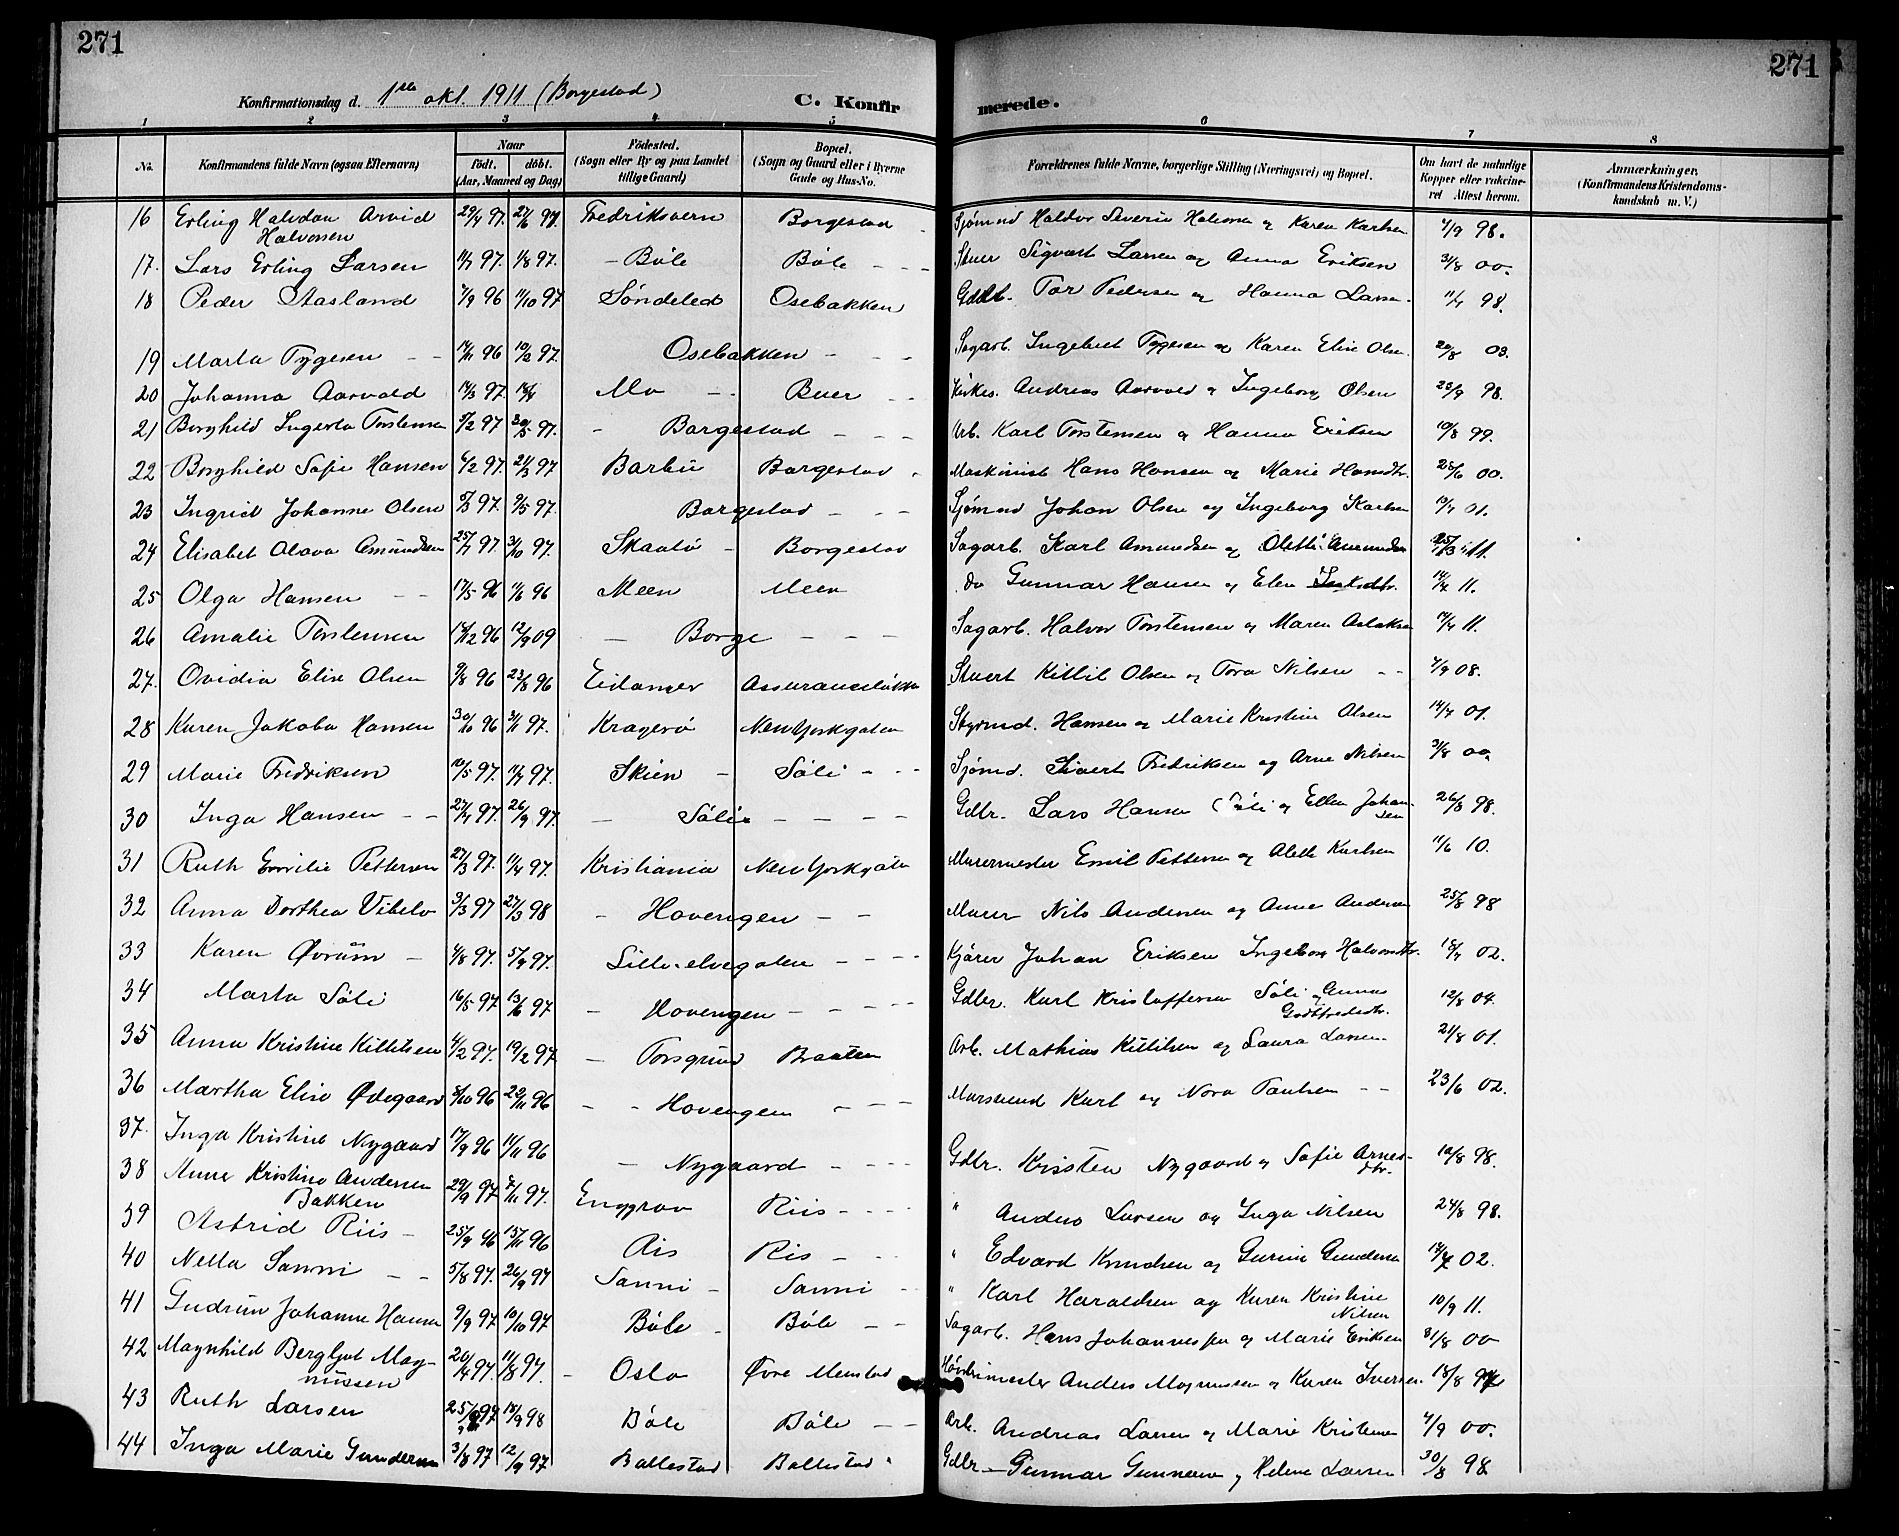 271
271
Konfirmationsdag d. 1ste okt. 1911 (Borgestad)
C. Konfirmerede.
1 2 3 4 5 6 7 8
No.
Konfirmandens fulde Navn (ogsaa Efternavn)
Naar
födt. döbt.
(Aar, Maaned og Dag)
Födested.
(Sogn eller By og paa Landet
tillige Gaard)
Bopæl.
(Sogn og Gaard eller i Byerne
Gade og Hus-No.
Forældrenes fulde Navne, borgerlige Stilling (Næringsvei) og Bopæl.
Om havt de naturlige
Kopper eller vakcine-
ret Attest herom.
Anmærkninger.
(Konfirmandens Kristendoms-
kundskab m. V.)
16 Erling Halvdan Arvid Fredriksvern Borgestad Sjömnd Haldor Severin Halvorsen og Karen Karlsen 98.
Halvorsen
17. Lars Erling Larsen 97. 1/8 97. – Böle Böle – – Stuer Sigvart Larsen og Anna Eriksen 31/8 00.
18 Peder Aasland 7/9 96 11/10 97 Söndeled Osebakken Gdbr. Tor Pedersen og Hanna Larsen 98.
19 Marta Tygesen – – 14/11 96 10/2 97. Osebakken – – – Sagarb. Ingebret Tygesen og Karen Elise Olsen. 20/8 03.
20 Johanna Aarvold 14/3 97. Mo – Buer – Kirkes. Andreas Aarvold og Ingeborg Olsen 98.
21 Borghild Ingerta Torstensen 97 30/5 97. – Borgestad – – – Arb. Karl Torstensen og Hanna Eriksen 10/8 99.
22 Borghild Sofie Hansen 6/2 97. 21/3 97 Barbu Borgestad Maskinist Hans Hansen og Marie Hansdtr. 00.
23 Ingrid Johanne Olsen 97. 9/5 97. Borgestad – – – Sjömnd Johan Olsen og Ingeborg Karlsen 01.
24 Elisabet Olava Amundsen 25/7 97 31/10 97. Skaatö – Borgestad Sagarb. Karl Amundsen og 11.
25 Olga Hansen – – 17/5 96 11/6 96 Meen Meen do Gunnar Hansen og Elen 11.
26 Amalie Torstensen 96 12/9 09 – Borge – – – Sagarb. Halvor Torstensen og Maren Aslaksen 11.
27. Ovidia Elise Olsen 9/8 96 23/8 96 Eidanger Stuert Kittil Olsen og Tora Nilsen – – 08.
28 Karen Jakoba Hansen 30/10 96 97. Kragerö New Yorkgaten Styrmd. Hansen og Marie Kristine Olsen 01.
29 Marie Fredriksen 10/5 97. 97. Skien – Söli – – – Sjömd. Sivert Fredriksen og Arne Nilsen 31/8 00.
30 Inga Hansen – – 97. 26/9 97. – Söli – – – – Gdbr. Lars Hansen Söli og Ellen Johan-
sen 26/8 98.
31 Ruth Emilie Pettersen 27/3 97. 11/4 97. Kristiania New Yorkgaten Murermester Emil Pettersen og Alette Karlsen 11/6 10.
32 Anna Dorthea Vibeto 3/3 97 27/3 98 – Hovengen – – Murer Nils Andersen og Anne Andersen 25/8 98
33 Karen Övrum – 4/8 97. 5/9 97. Lille-elvegaten – – – – Kjörer Johan Eriksen Ingeborg Halvorsdtr. 02.
34 Marta Söli 16/5 97. 13/6 97 – Hovengen – – – – Gdbr. Karl Kristoffersen Söli og Gunnas
Gottfredsdtr. 12/8 04.
35 Anna Kristine Kittilsen 4/2 97. 19/2 97 – Porsgrund Braaten Arb. Mathias Kittilsen og Laura Larsen 21/8 01.
36 Martha Elise Ödegaard 96 29/11 96 – – Hovengen – – – Murs­vend Karl og Nora Paulsen – – 23/6 02.
37. Inga Kristine Nygaard 17/9 96 11/11 96 – Nygaard – – – – Gdbr. Kristen Nygaard og Sofie Arnes-
dtr. 10/8 98.
38 Anne Kristine Andersen 29/9 97 7/11 97. Enggrav Riis – – – – " Anders Larsen og Inga Nilsen 24/8 98.
Bakken
39 Astrid Riis – 25/9 96 15/11 96 Ris Ris – – " Edvard Knudsen og Gurine Gundersen 02.
40 Nella Sanni – – 5/8 97. 26/9 97 Sanni – Sanni – – " Karl Haraldsen og Karen Kristine
Nilsen 10/9 11.
41 Gudrun Johanne Hansen 9/9 97 10/10 97 Böle – Böle – – Sagarb. Hans Johannessen og Marie Eriksen 31/8 00
42 Magnhild Bergljot Mag-
nussen 97. 11/8 97. – Oslo Övre Menstad Anders Magnussen og Karen Iversen. 97
43 Ruth Larsen 97 98 Böle Böle – – Arb. Andreas Larsen og Marie Kristensen 00.
44 Inga Marie Gundersen 3/8 97 12/9 97 Ballestad Ballestad Gdbr – Gunnar Gunnersen og Helene Larsen 30/8 98